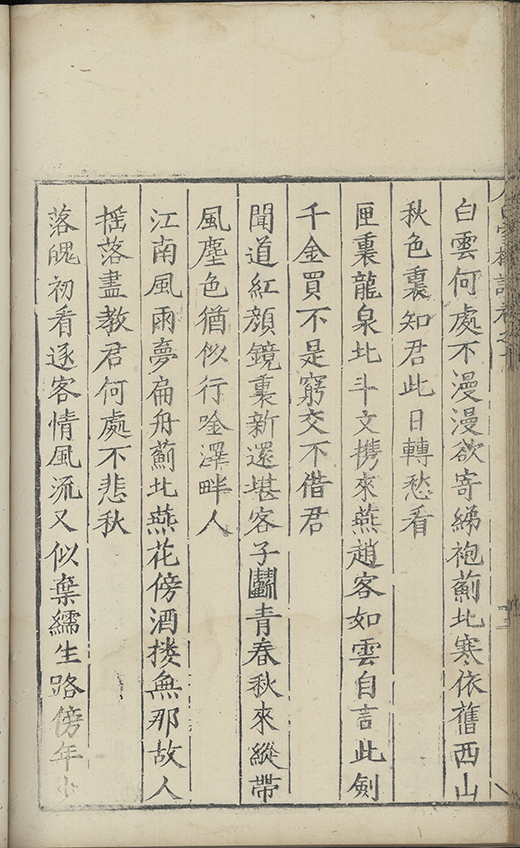 白雲何處不漫漫欲寄綈袍薊北寒依舊西山
秋色裏知君此日轉愁看
匣裏龍泉北斗文携來燕趙客如雲自言此劍
千金買不是窮交不借君
聞道紅顔鏡裏新還堪客子鬭青春秋來縱帶
風塵色猶似行唫澤畔人
江南風雨夢扁舟薊北燕花傍酒摟無那故人
揺落盡教君何處不悲秋
落魄初看逐客情風流又似棄繻生路傍年少